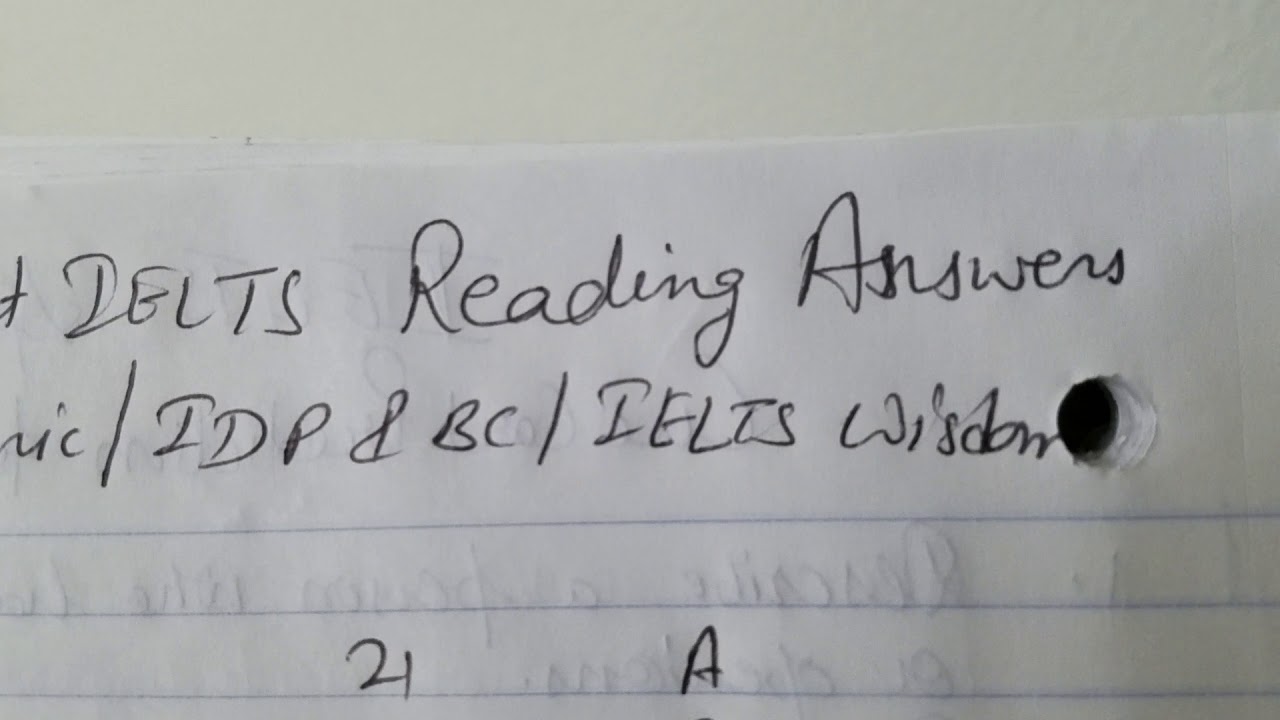 IELTS Reading Answers
/ IDP & BC / IELTS Wisdom
21 A